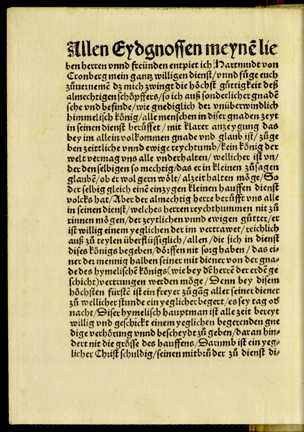 Allen Eydgnossen meynē lie
ben herren vnnd freünden entpiet ich Hartmudt von
Cronberg mein gantz willigen dienst/ vnnd füge euch
zůuernemē dz mich zwingt die höchst gütigkeit deß
almechtigen schöpffers/ so ich auß sonderlicher gnadē
sehe vnd befinde/ wie gnediglich der vnüberwindlich
himmelisch könig/ alle menschen in diser gnaden zeyt
in seinen dienst berüffet/ mit klarer anzeygung das
bey im allein volkommen gnade vnd glaub ist/ zůge
ben zeittliche vnnd ewige reychtumb/ kein könig der
welt vermag vns alle vnderhalten/ wellicher ist vn/
der den selbigen so mechtig/ das er in kleinen zůsagen
glaub/ ob er wol gern wölt/ alzeit halten möge/ So
der selbig gleich eine einzygen kleinen hauffen dienst
volcks hat/ Aber der almechtig herre berüfft vns alle
in seinen dienst/ welches herren reychthummen nit zů
rinnen mögen/ der zeytlichen vnnd ewigen gütter/ er
ist willig einem yeglichen der im vertrawet/ reichlich
auß zů teylen überflüssiglich/ allen/ die sich in dienst
dises königs begeben/ dörffen nit sorg haben/ das ei/
ner der mennig halben seiner mit diener von der gna/
de des hymelischē königs (wie bey dē herrē der erdē ge
schicht) vertrungen werden möge/ Denn bey disem
höchsten fürstē ist ein freyer zůgāg aller seiner diener
zů wellicher stunde ein yeglicher begert/ es sey tag od
nacht/ Diser hymelisch hauptman ist alle zeit bereyt
willig vnd geschickt einem yeglichen begerenden gne
dige verhörung vnnd bescheydt zů geben/ daran hin/
dert nit die grösse des hauffens/ Darumb ist ein yeg/
licher Christ schuldig/ seinen mitbrůder zů dienst di/